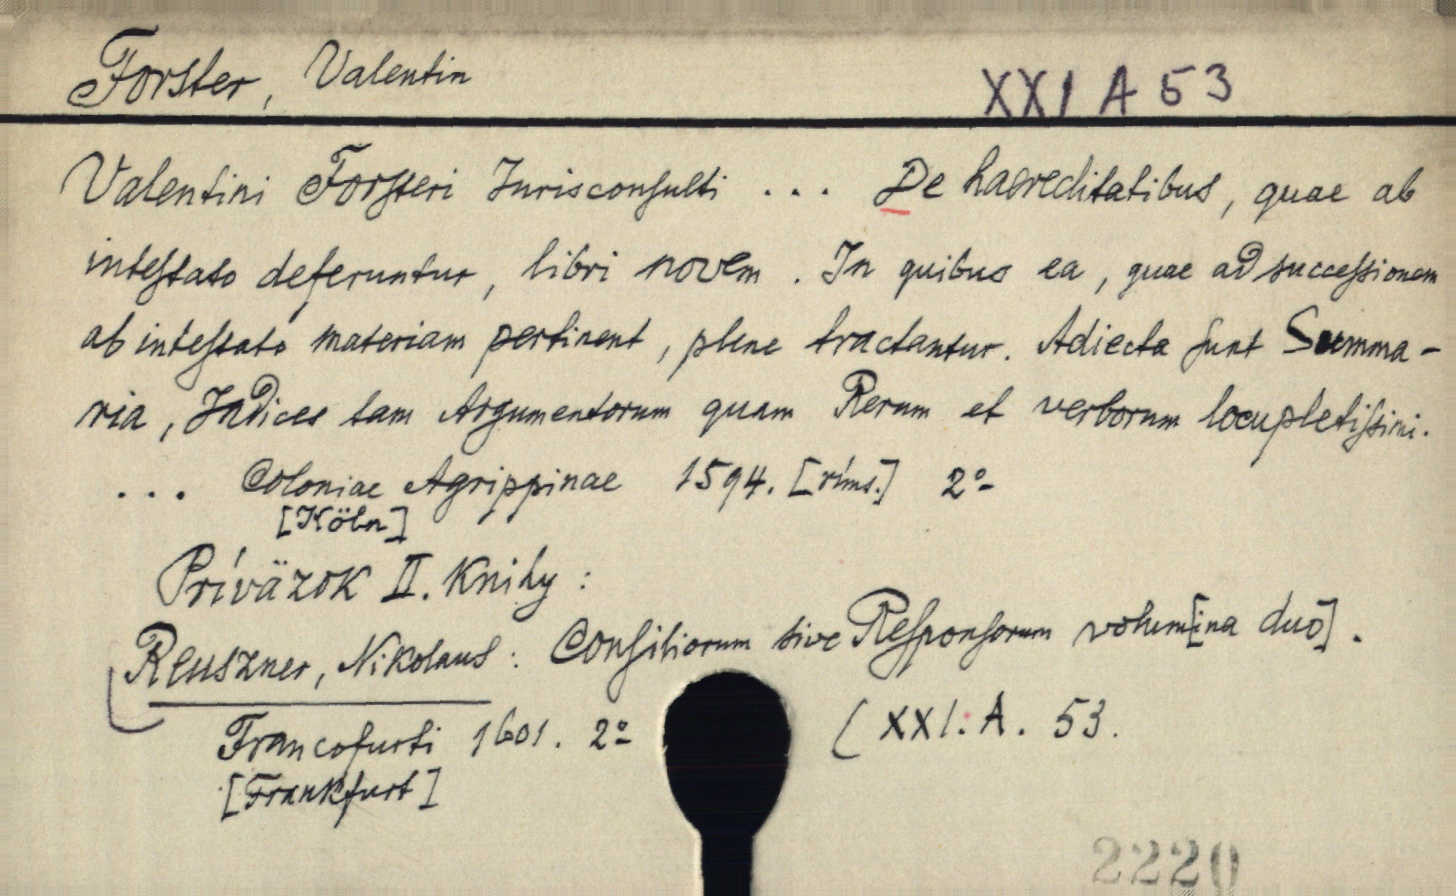 Forster, Valentin
XXI A 53
Valentini Forsteri Jurisconsulti ... De haereditatibus, quae ab
intestato deferuntur, libri novem. In quibus ea, quae ad successionem
ab intestato materiam pertinent, plene tractantur. Adiecta sunt Summa-
ria, Indices tam Argumentorum quam Rerum et verborum locupletissimi.
... Coloniae Agrippinae 1594. [ríms.] 2°
[Köln]
Príväzok II. Knihy:
Reuszner, Nikolaus: Consiliorum sive Responsorum volum[ina duo].
Francofurti 1601. 2° (XXI. A. 53.
[Frankfurt]
2220